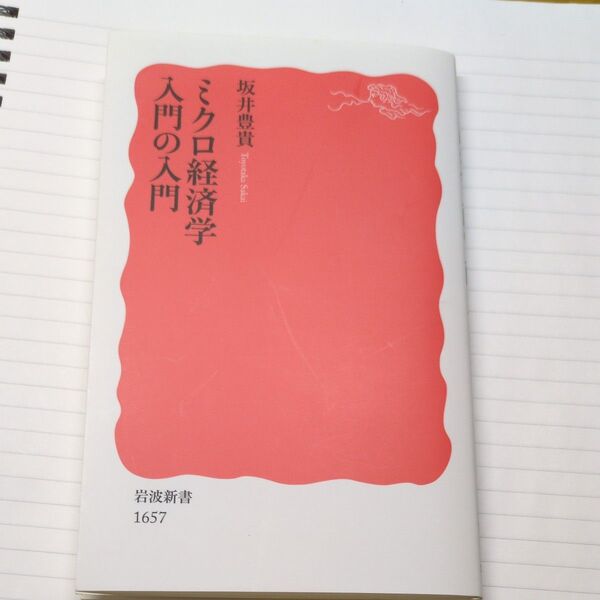 ミクロ経済学
入門の入門
坂井豊貴
Toyotaka Sakai
岩波新書
1657